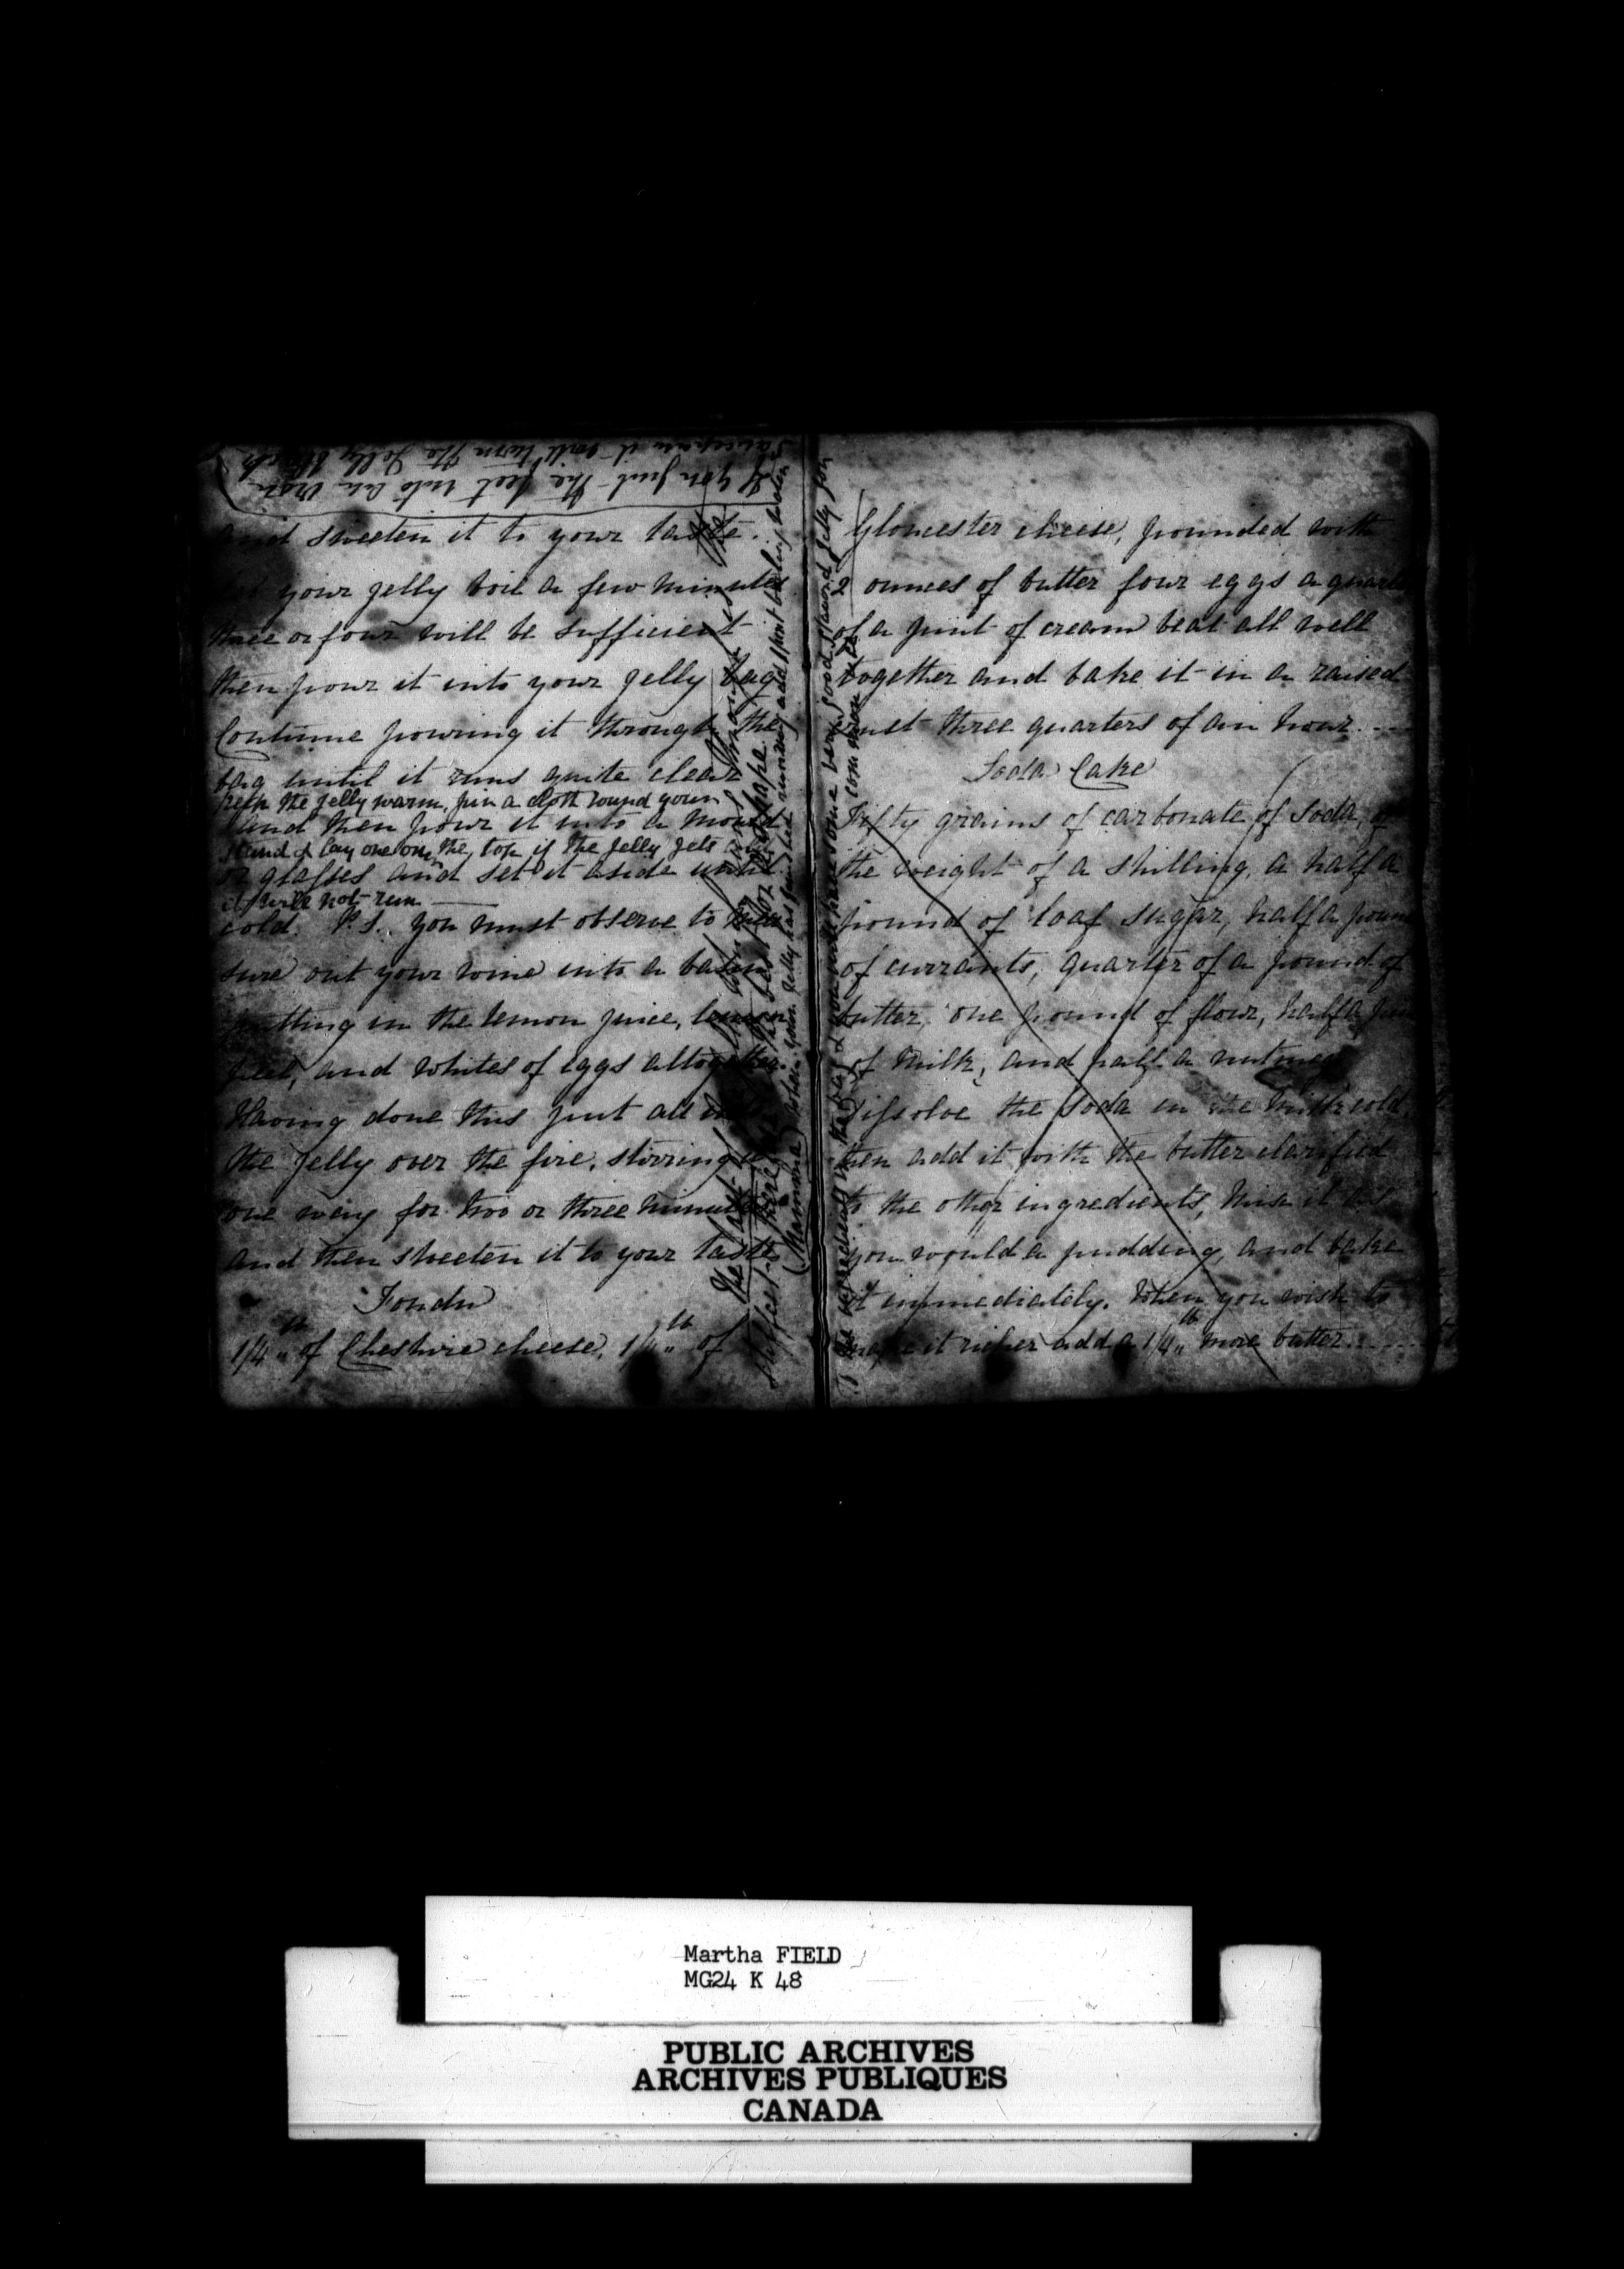 If you put the feet into an iron
saucepan it will turn the Jelly black
and sweeten it to your taste.
your jelly boil a few minutes
three or four will be sufficient
then pour it into your jelly bag
Continue pouring it through the
bag until it runs quite clear
keep the jelly warm, pin a cloth round your
and then pour it into a mould
stand & lay one on the top if the jelly gets
or glasses and set it aside until
it will not run
cold. P.S. you must observe to mea
sure out your wine into a basin
putting in the lemon juice, lemon
peel, and whites of eggs altogether.
Having done this put all into
the jelly over the fire, stirring it
one way for two or three minutes
and then sweeten it to your taste
Fondu
1/4 lb of Cheshire cheese, 1/4 lb of
the best for
shape.
(Mamma) when your jelly has finished running add 1 pint boiling water
to the ingredients in the bag & you will have some very good stand jelly for
common use
Gloucester cheese, pounded with
2 ounces of butter four eggs a quarter
of a pint of cream beat all well
together and bake it in a raised
crust three quarters of an hour.---
Soda Cake
Fifty grains of carbonate of soda, or
the weight of a shilling, a half a
pound of loaf sugar, half a pound
of currants, quarter of a pound of
butter, one pound of flour, half a pint
of milk, and half a nutmeg
Dissolve the Soda in the milk cold,
then add it with the butter clarified
to the other ingredients, mix it as
you would a pudding, and bake
it immediately. When you wish to
make it richer add a 1/4 lb more butter.....
Martha FIELD
MG24 K 48
PUBLIC ARCHIVES
ARCHIVES PUBLIQUES
CANADA